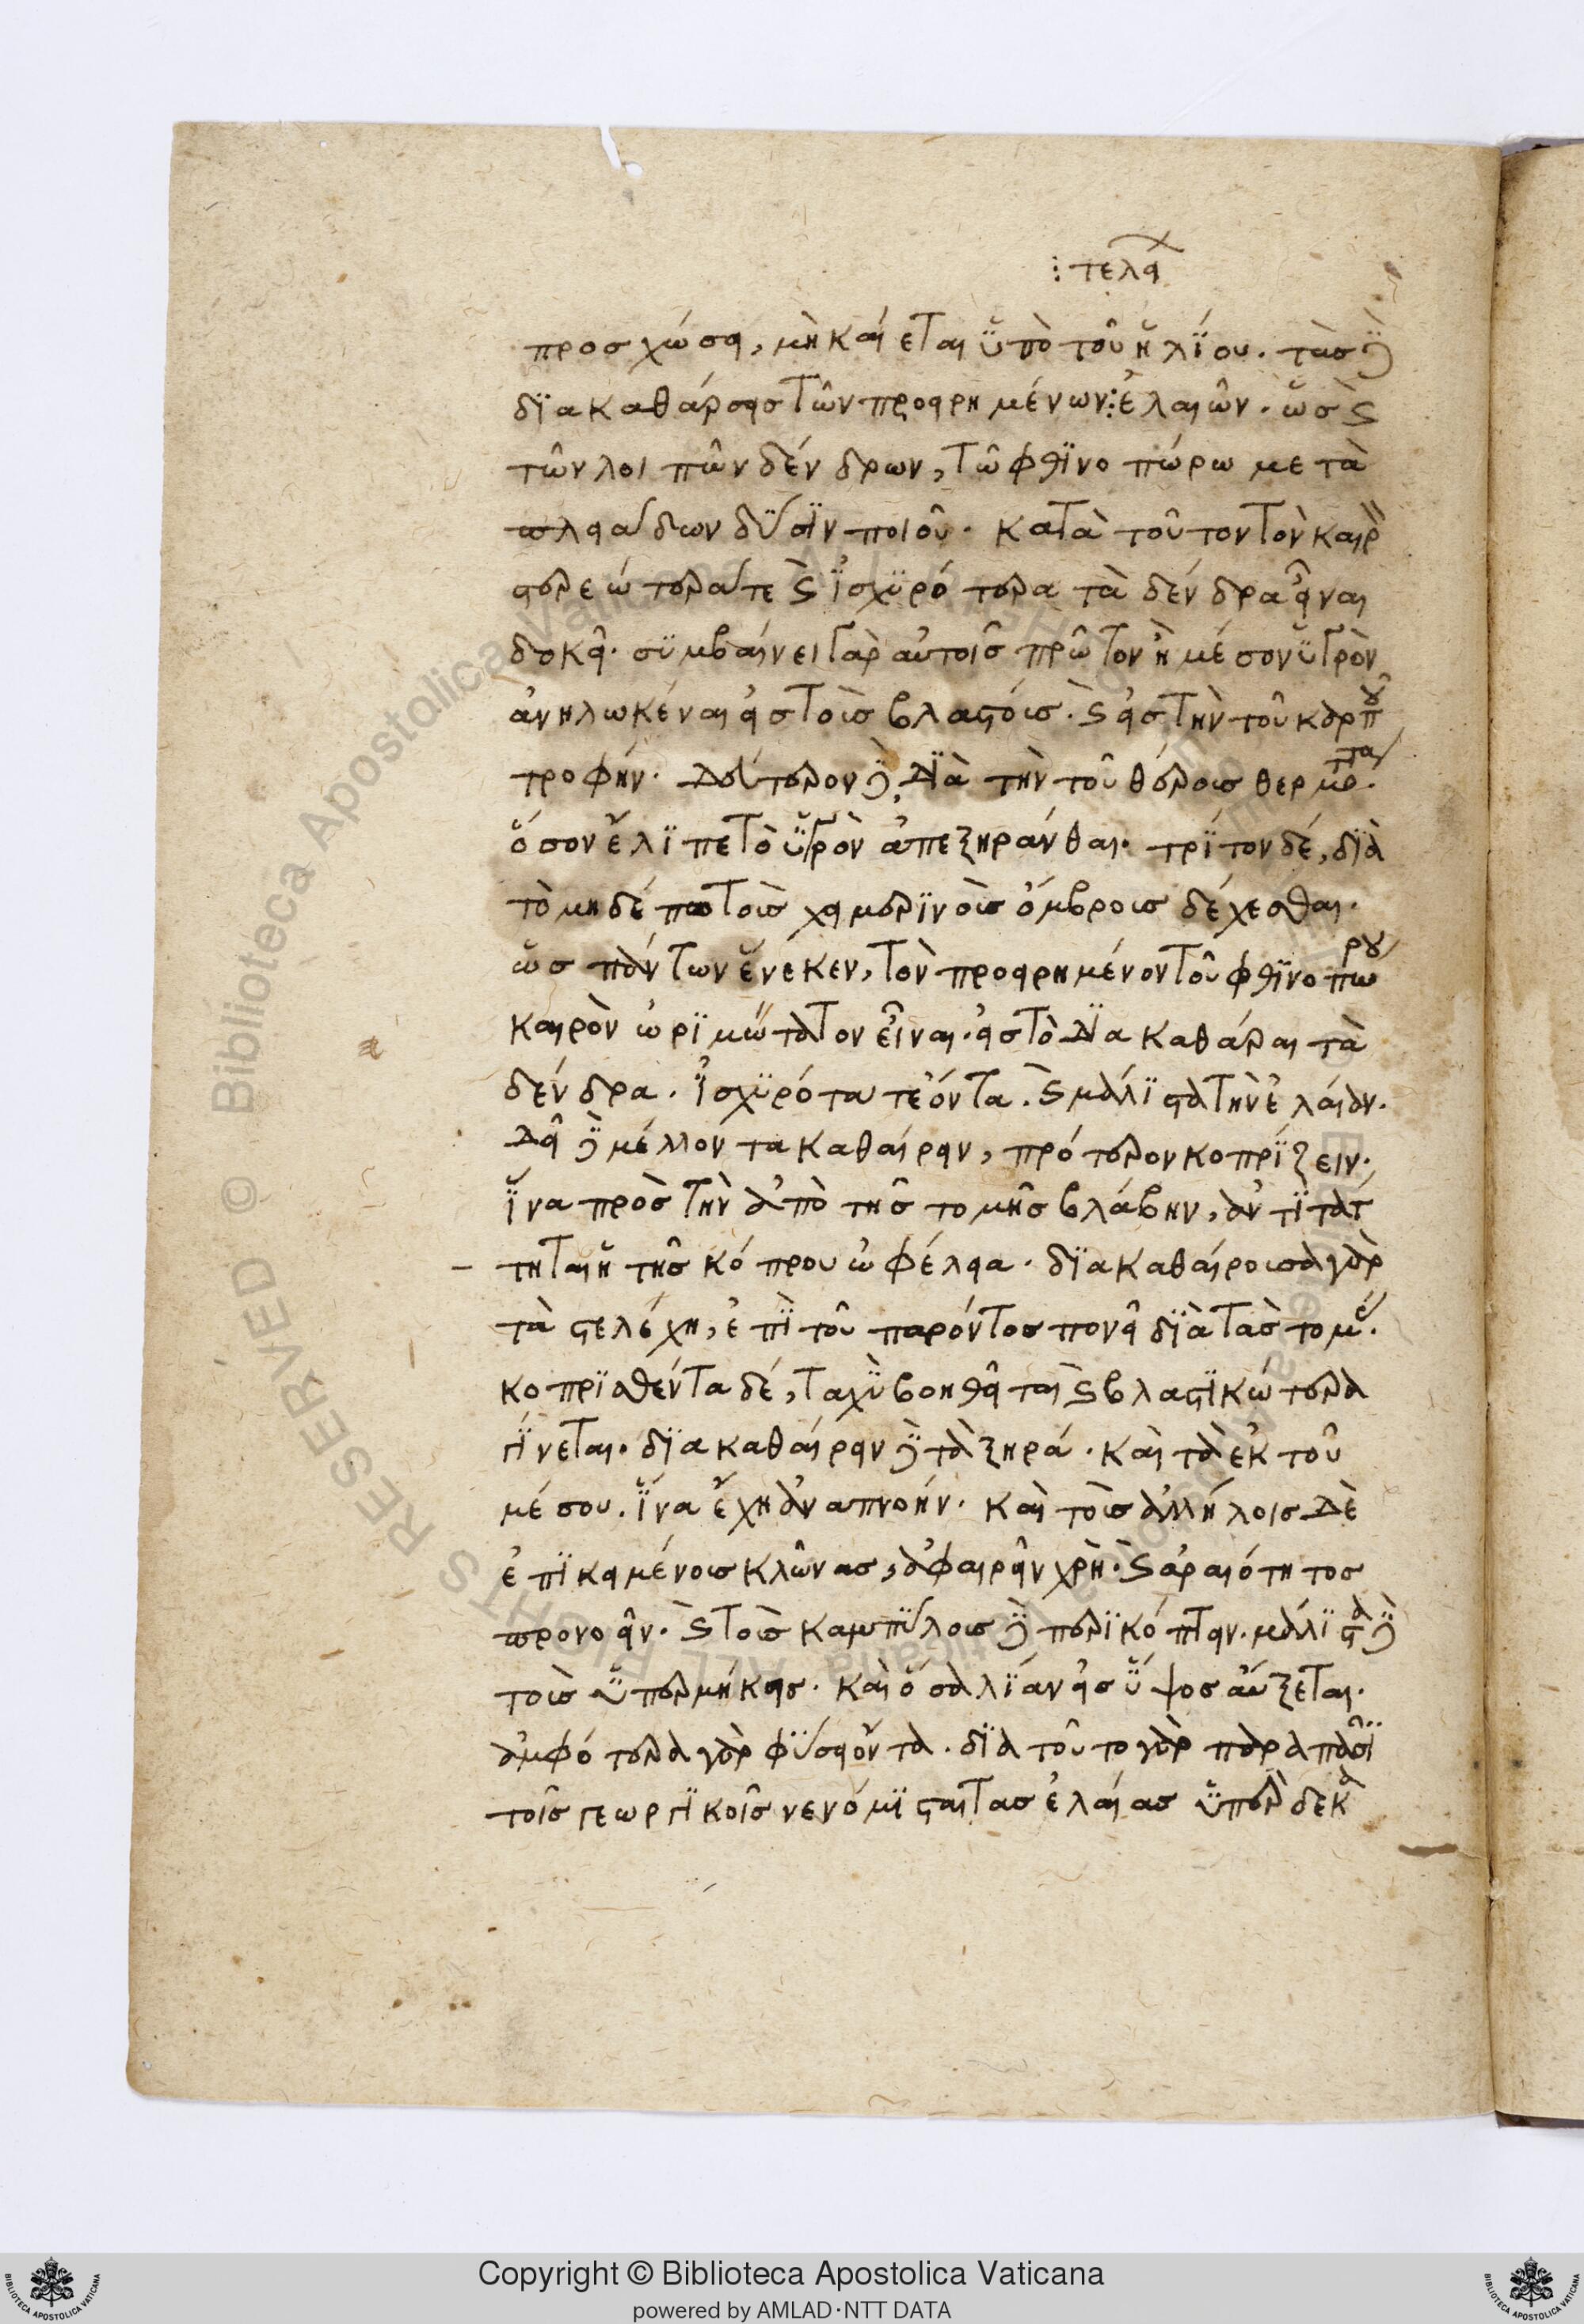 ⁝ τελεί
προσχώσει, μὴ καίεται ὑπὸ τοῦ ἡλίου. τὰς δὲ
διακαθάρσεις τῶν προειρημένων ⁝ ἐλαιῶν. ὡς καὶ
τῶν λοιπῶν δένδρων, τῶ φθινοπώρω μετὰ
πλειάδων δύσιν ποιοῦ. κατὰ τοῦτον τὸν καιρὸν
στερεώτερα τὲ καὶ ἰσχυρότερα τὰ δένδρα εἶναι
δοκεῖ. συμβαίνει γὰρ αὐτοῖς πρῶτον ἢ μέσον ὑγρὸν
ἀνηλωκέναι εἰς τοὺς βλαστούς. καὶ εἰς τὴν τοῦ καρποῦ
τροφήν. δεύτερον δὲ, διὰ τὴν τοῦ θέρους θερμότητα.
ὅσον ἔλιπε τὸ ὑγρὸν ἀπεξηράνθαι. τρίτον δέ, διὰ
τὸ μηδέπω τοὺς χειμερινοὺς ὄμβρους δέχεσθαι.
ὡς πάντων ἕνεκεν, τὸν προειρημένον τοῦ φθινοπώρου
καιρὸν ὡριμώτατον εἶναι. εἰς τὸ διακαθάραι τὰ
δένδρα. ἰσχυρότατα τε ὄντα. καὶ μάλιστα τὴν ἐλαίαν.
δεῖ δὲ μέλλοντα καθαίρειν, πρότερον κοπρίζειν.
ἵνα πρὸς τὴν ἀπὸ τῆς τομῆς βλάβην, ἀντιτάτ
τηται ἡ τῆς κόπρου ὠφέλεια. διακαθαίρουσα γὰρ
τὰ στελέχη, ἐπὶ τοῦ παρόντος πονεῖ διὰ τὰς τομάς.
κοπρισθέντα δέ, ταχὺ βοηθεῖται καὶ βλαστικώτερα
γίνεται. διακαθαίρειν δὲ τὰ ξηρά. καὶ τὰ ἐκ τοῦ
μέσου. ἵνα ἔχη ἀναπνοήν. καὶ τοὺς ἀλλήλοις δὲ
ἐπικειμένους κλῶνας, ἀφαιρεῖν χρή. καὶ ἀραιότητος
προνοεῖν. καὶ τοὺς καμπύλους δὲ περικόπτειν. μάλιστα δὲ
τοὺς ὑπερμήκεις. καὶ ὅσα λίαν εἰς ὕψος αὔξεται.
ἀμφότερα γὰρ φύσει ὄντα. διὰ τοῦτο γὰρ παρὰ πᾶσι
τοῖς γεωργικοῖς νενόμισται τὰς ἐλαίας ὑπὲρ δέκα
Copyright © Biblioteca Apostolica Vaticana
powered by AMLAD·NTT DATA